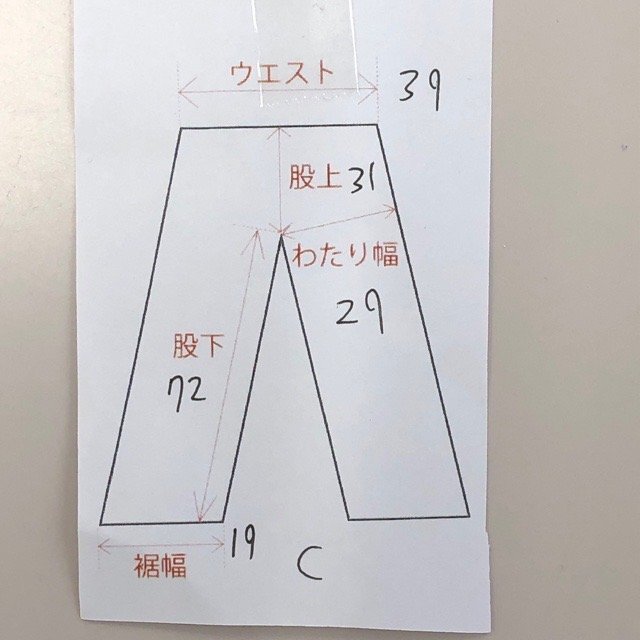 ウエスト 39
股上 31
わたり幅
29
股下
72
裾幅
19
C